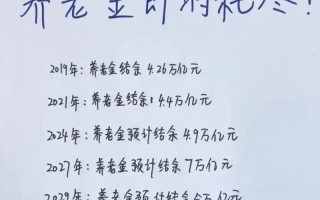 养老金即将耗尽!
2019年:养老金结余 4.26万亿元
2021年:养老金结余:4.4万亿元
2024年:养老金预计结余 4.9万亿元
2027年:养老金预计结余 7万亿元
2029年:养老金预计结余5万亿元